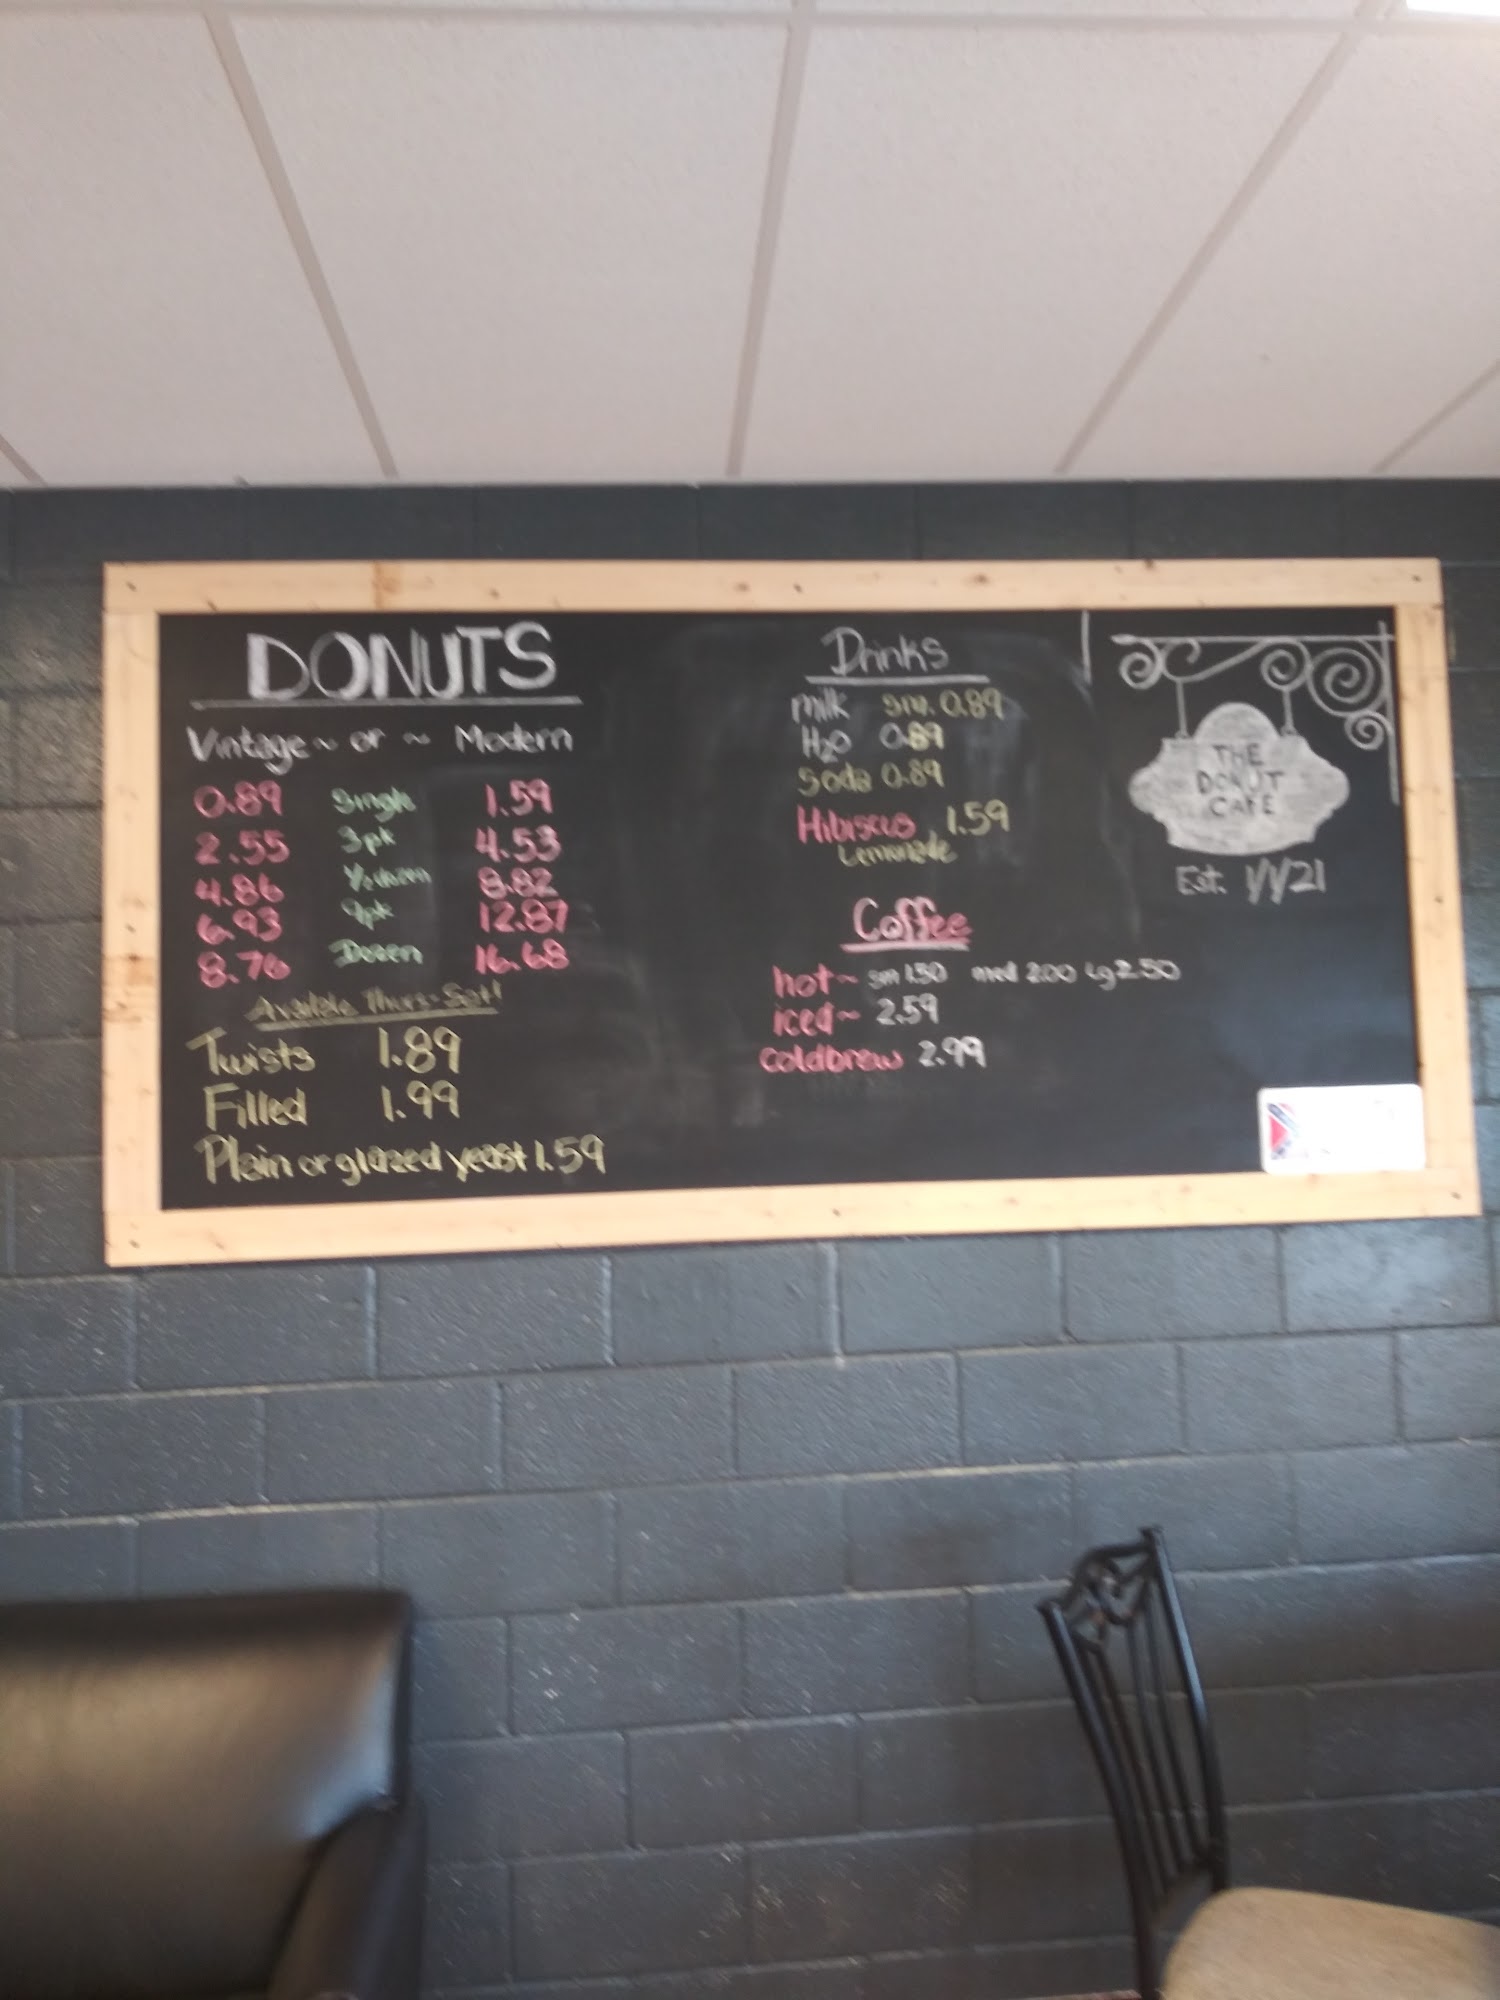 DONUTS
Vintage ~ or ~ Modern
0.89 Single 1.59
2.55 3pk 4.53
4.86 1/2 dozen 8.82
6.93 9pk 12.87
8.76 Dozen 16.68
Thurs-Sat!
Twists 1.89
Filled 1.99
Plain or glazed yeast 1.59
Drinks
milk sm. 0.89
H2O 0.89
Soda 0.89
Hibiscus 1.59
Lemonade
Coffee
hot~ sm 1.50 med 2.00 Lg 2.50
iced~ 2.59
coldbrew 2.99
THE
DONUT
CAFE
Est. 1/1/21